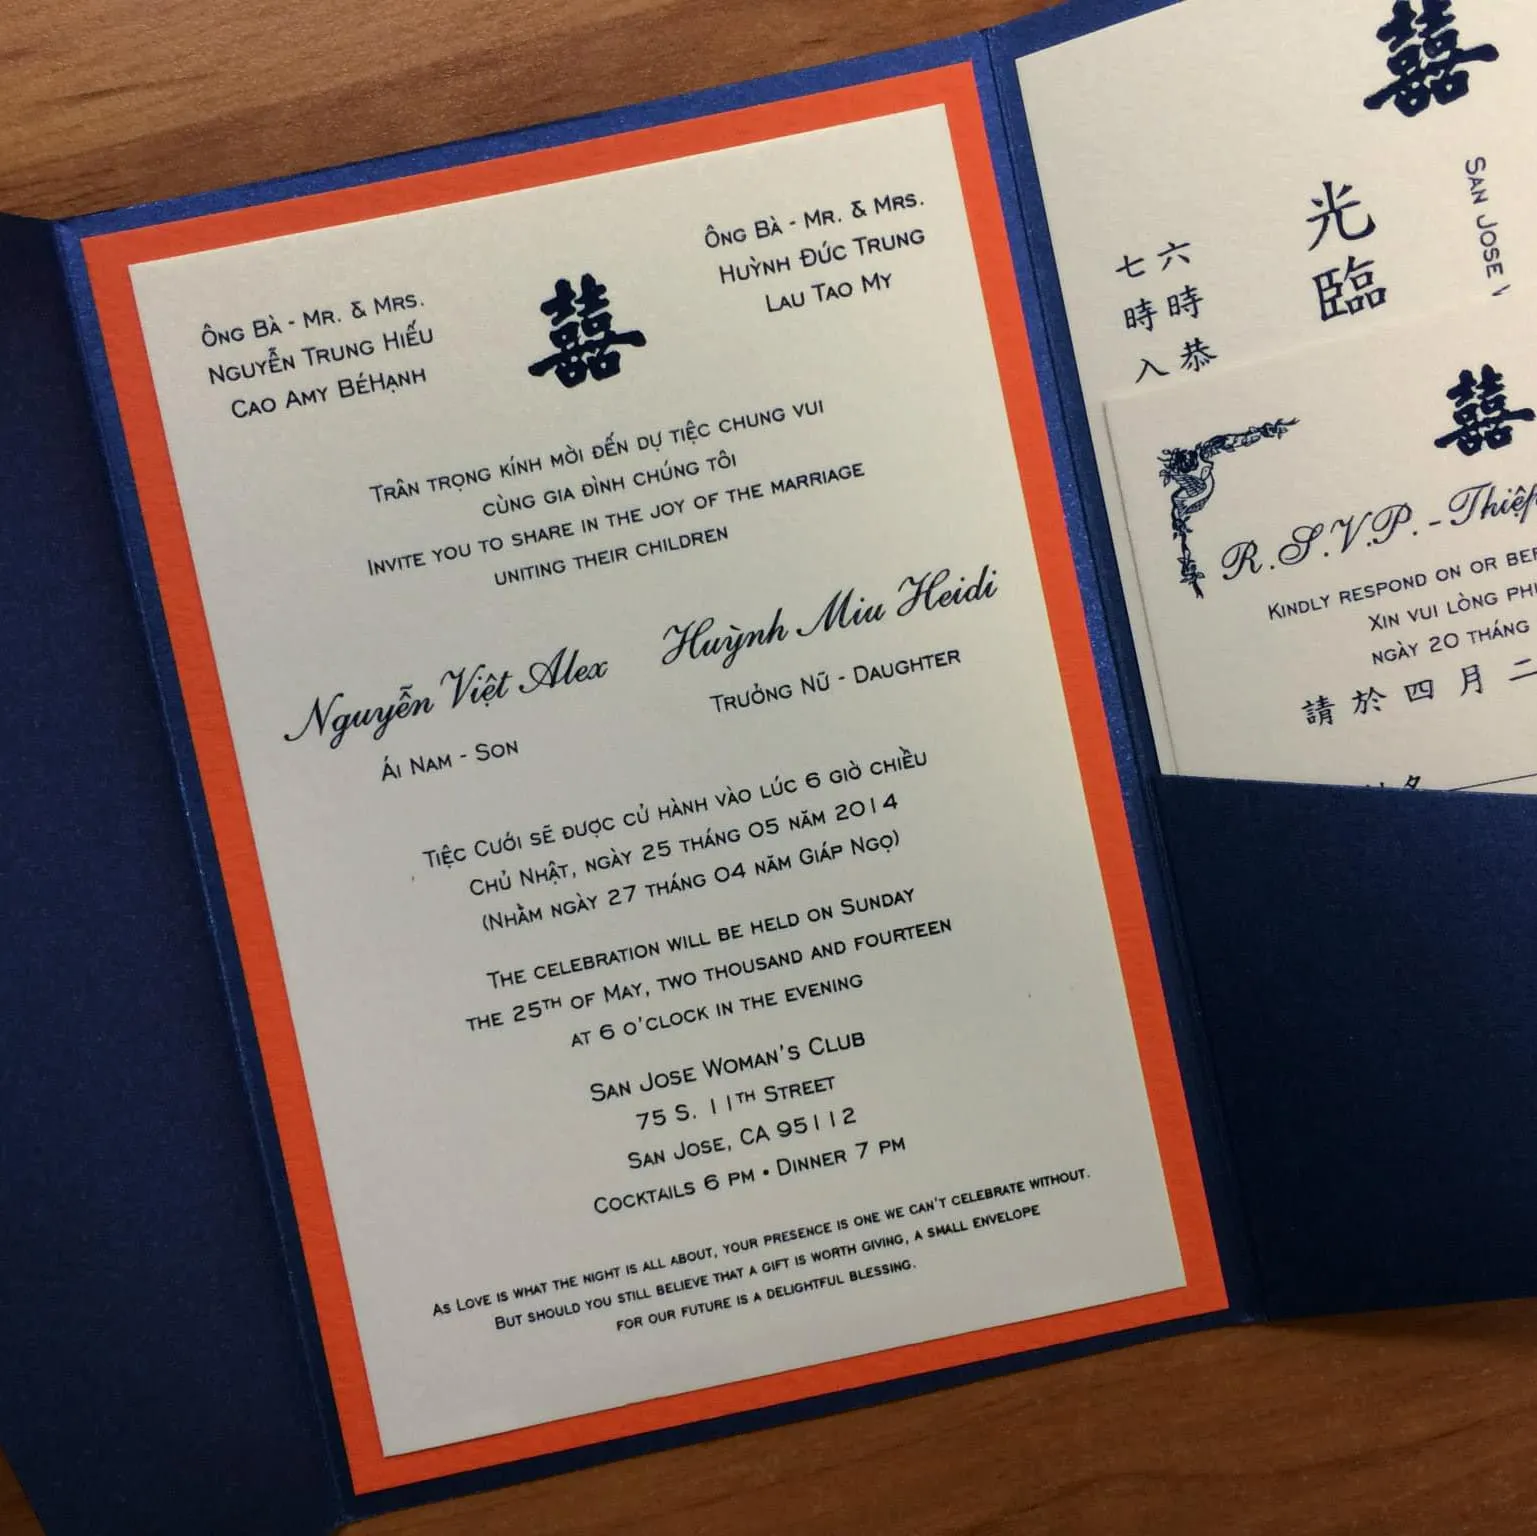 Ông Bà - Mr. & Mrs.
Nguyễn Trung Hiếu
Cao Amy BéHạnh
囍
Ông Bà - Mr. & Mrs.
Huỳnh Đức Trung
Lau Tao My
Trân trọng kính mời đến dự tiệc chung vui
cùng gia đình chúng tôi
Invite you to share in the joy of the marriage
uniting their children
Nguyễn Việt Alex
Ái Nam - Son
Huỳnh Miu Heidi
Trưởng Nữ - Daughter
Tiệc Cưới sẽ được cử hành vào lúc 6 giờ chiều
Chủ Nhật, ngày 25 tháng 05 năm 2014
(Nhằm ngày 27 tháng 04 năm Giáp Ngọ)
The celebration will be held on Sunday
the 25th of May, two thousand and fourteen
at 6 o'clock in the evening
San Jose Woman's Club
75 S. 11th Street
San Jose, CA 95112
Cocktails 6 pm • Dinner 7 pm
As Love is what the night is all about, your presence is one we can't celebrate without.
But should you still believe that a gift is worth giving, a small envelope
for our future is a delightful blessing.
囍
San Jose
光臨
六時恭
七時入
囍
R.S.V.P. - Thiệp
Kindly respond on or
Xin vui lòng
ngày 20 tháng
請於四月二